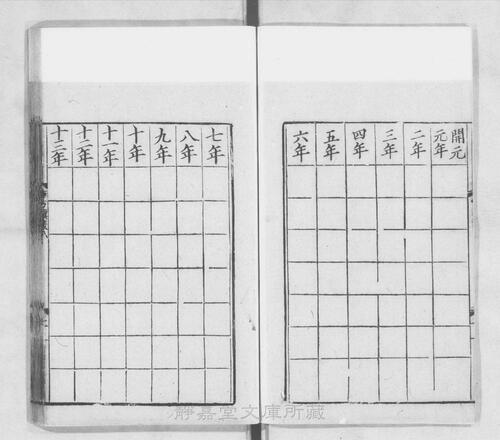 開元
元年
二年
三年
四年
五年
六年
七年
八年
九年
十年
十一年
十二年
十三年
靜嘉堂文庫所藏